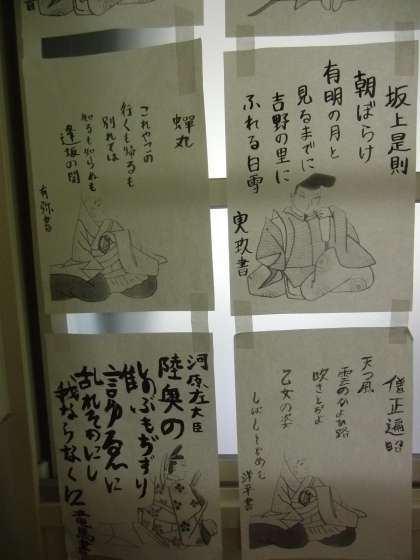 坂上是則
朝ぼらけ
有明の月と
見るまでに
吉野の里に
ふれる白雪
蟬丸
これやこの
行くも帰るも
別れては
知るも知らぬも
逢坂の関
有弥書
僧正遍昭
天つ風
雲のかよひ路
吹きとぢよ
乙女の姿
しばしとどめむ
洋平書
河原左大臣
陸奥の
しのぶもぢずり
誰
言ゆゑに
乱れそめにし
我ならなくに